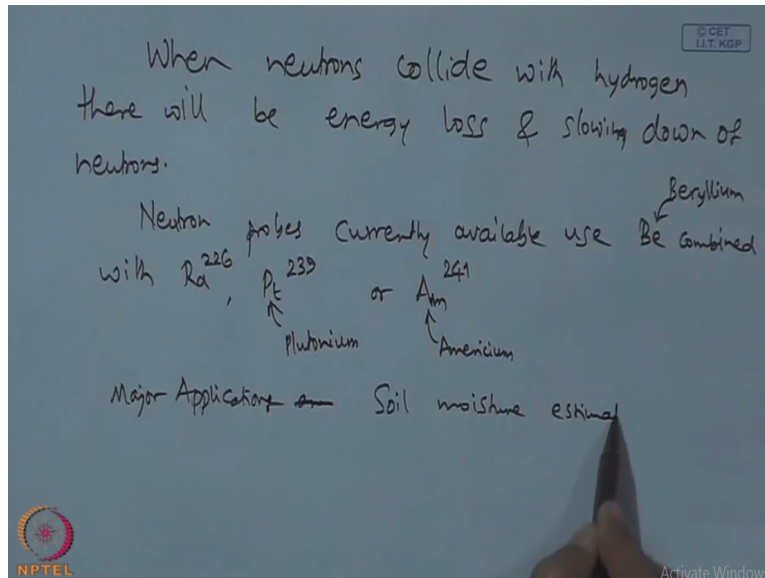 © CET
I.I.T. KGP
When neutrons collide with hydrogen
there will be energy loss & slowing down of
neutrons.
Beryllium
Neutron probes currently available use Be combined
with Ra226, Pt239 or Am241
Plutonium Americium
Major Application Soil moisture estimat
NPTEL
Activate Window